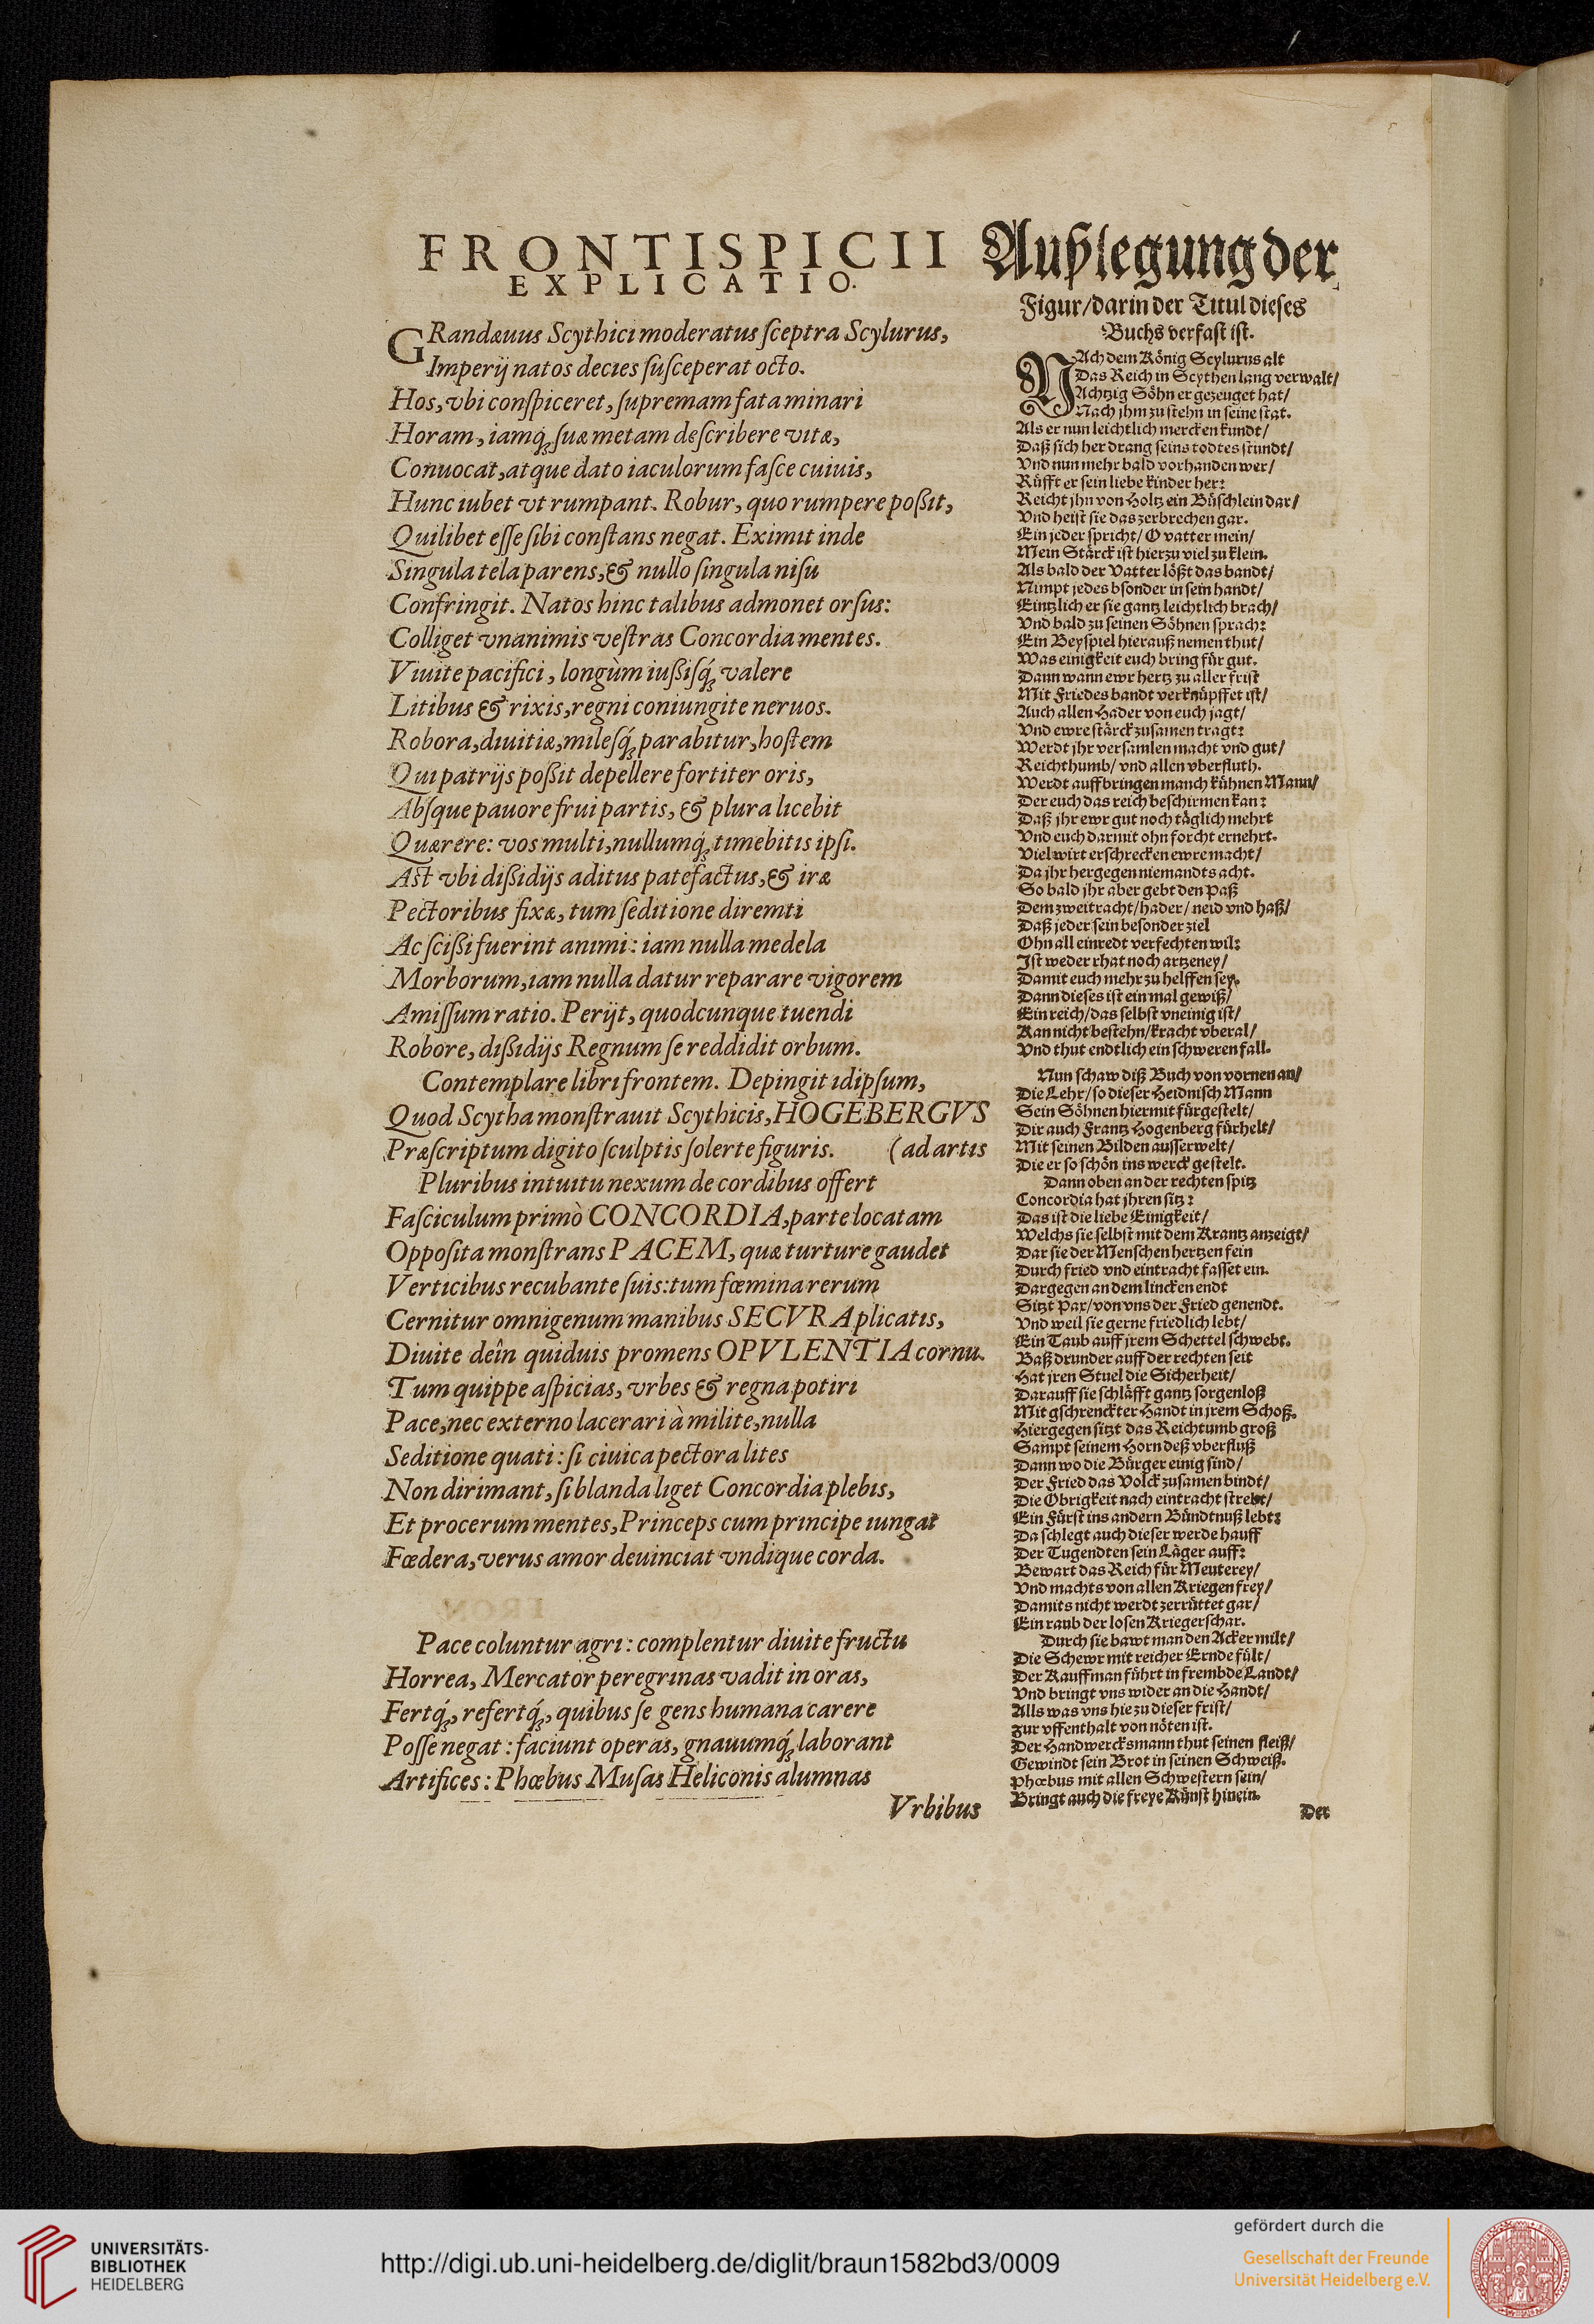 FRONTISPICII
EXPLICATIO.
GRandæuus Scythici moderatus ſceptra Scylurus,
Imperij natos decies ſuſceperat octo.
Hos, vbi conſpiceret, ſupremam fata minari
Horam, iamq́ꝫ ſuæ metam deſcribere vitæ,
Conuocat, atque dato iaculorum faſce cuiuis,
Hunc iubet vt rumpant. Robur, quo rumpere poßit,
Quilibet eſſe ſibi conſtans negat. Eximit inde
Singula tela parens, & nullo ſingula niſu
Confringit. Natos hinc talibus admonet orſus:
Colliget vnanimis veſtras Concordia mentes.
Viuite pacifici, longùm iußiſq́ꝫ valere
Litibus & rixis, regni coniungite neruos.
Robora, diuitiæ, mileſq́ꝫ parabitur, hoſtem
Qui patrijs poßit depellere fortiter oris,
Abſque pauore frui partis, & plura licebit
Quærere: vos multi, nullumq́ꝫ timebitis ipſi.
Aſt vbi dißidijs aditus patefactus, & iræ
Pectoribus fixæ, tum ſeditione diremti
Ac ſcißi fuerint animi: iam nulla medela
Morborum, iam nulla datur reparare vigorem
Amiſſum ratio. Perijt, quodcunque tuendi
Robore, dißidijs Regnum ſe reddidit orbum.
Contemplare libri frontem. Depingit idipſum,
Quod Scytha monſtrauit Scythicis, HOGEBERGVS
Præſcriptum digito ſculptis ſolerte figuris. (ad artis
Pluribus intuitu nexum de cordibus offert
Faſciculum primò CONCORDIA, parte locatam
Oppoſita monſtrans PACEM, quæ turture gaudet
Verticibus recubante ſuis: tum fœmina rerum
Cernitur omnigenum manibus SECVRA plicatis,
Diuite deîn quiduis promens OPVLENTIA cornu.
Tum quippe aſpicias, vrbes & regna potiri
Pace, nec externo lacerari à milite, nulla
Seditione quati: ſi ciuica pectora lites
Non dirimant, ſi blanda liget Concordia plebis,
Et procerum mentes, Princeps cum principe iungat
Fœdera, verus amor deuinciat vndique corda.
Pace coluntur agri: complentur diuite fructu
Horrea, Mercator peregrinas vadit in oras,
Fertq́ꝫ, refertq́ꝫ, quibus ſe gens humana carere
Poſſe negat: faciunt operas, gnauumq́ꝫ laborant
Artifices: Phœbus Muſas Heliconis alumnas
Vrbibus
Außlegung der
Figur/ darin der Titul dieſes
Buchs verfaſt iſt.
NAch dem König Scylurus alt
Das Reich in Scythen lang verwalt/
Achtzig Söhn er gezeuget hat/
Nach jhm zu ſtehn in ſeine ſtat.
Als er nun leichtlich mercken kundt/
Daß ſich her drang ſeins todtes ſtundt/
Vnd nun mehr bald vorhanden wer/
Rüfft er ſein liebe kinder her:
Reicht jhn von Holtz ein Büſchlein dar/
Vnd heiſt ſie das zerbrechen gar.
Ein jeder ſpricht/ O vatter mein/
Mein Stärck iſt hierzu viel zu klein.
Als bald der Vatter lößt das bandt/
Nimpt jedes bſonder in ſein handt/
Eintzlich er ſie gantz leichtlich brach/
Vnd bald zu ſeinen Söhnen ſprach:
Ein Beyſpiel hierauß nemen thut/
Was einigkeit euch bring für gut.
Dann wann ewr hertz zu aller friſt
Mit Friedes bandt verknüpffet iſt/
Auch allen Hader von euch jagt/
Vnd ewre ſtärck zuſamen tragt:
Werdt jhr verſamlen macht vnd gut/
Reichthumb/ vnd allen vberfluth.
Werdt auffbringen manch kühnen Mann/
Der euch das reich beſchirmen kan:
Daß jhr ewr gut noch täglich mehrt
Vnd euch darmit ohn forcht ernehrt.
Viel wirt erſchrecken ewre macht/
Da jhr hergegen niemandts acht.
So bald jhr aber gebt den paß
Dem zweitracht/ hader/ neid vnd haß/
Daß jeder ſein beſonder ziel
Ohn all einredt verfechten wil:
Iſt weder rhat noch artzeney/
Damit euch mehr zu helffen ſey.
Dann dieſes iſt ein mal gewiß/
Ein reich/ das ſelbſt vneinig iſt/
Kan nicht beſtehn/ kracht vberal/
Vnd thut endtlich ein ſchweren fall.
Nun ſchaw diß Buch von vornen an/
Die Lehr/ ſo dieſer Heidniſch Mann
Sein Söhnen hiermit fürgeſtelt/
Dir auch Frantz Hogenberg fürhelt/
Mit ſeinen Bilden auſſerwelt/
Die er ſo ſchön ins werck geſtelt.
Dann oben an der rechten ſpitz
Concordia hat jhren ſitz:
Das iſt die liebe Einigkeit/
Welchs ſie ſelbſt mit dem Krantz anzeigt/
Dar ſie der Menſchen hertzen fein
Durch fried vnd eintracht faſſet ein.
Dargegen an dem lincken endt
Sitzt Pax/ von vns der Fried genendt.
Vnd weil ſie gerne friedlich lebt/
Ein Taub auff jrem Schettel ſchwebt.
Baß drunder auff der rechten ſeit
Hat jren Stuel die Sicherheit/
Darauff ſie ſchläfft gantz ſorgenloß
Mit gſchrenckter Handt in jrem Schoß.
Hiergegen ſitzt das Reichtumb groß
Sampt ſeinem Horn deß vberfluß
Dann wo die Bürger einig ſind/
Der Fried das Volck zuſamen bindt/
Die Obrigkeit nach eintracht ſtrebt/
Ein Fürſt ins andern Bündtnuß lebt:
Da ſchlegt auch dieſer werde hauff
Der Tugendten ſein Läger auff:
Bewart das Reich für Meuterey/
Vnd machts von allen Kriegen frey/
Damits nicht werdt zerrüttet gar/
Ein raub der loſen Kriegerſchar.
Durch ſie bawt man den Acker milt/
Die Schewr mit reicher Ernde fült/
Der Kauffman führt in frembde Landt/
Vnd bringt vns wider an die Handt/
Alls was vns hie zu dieſer friſt/
Zur vffenthalt von nöten iſt.
Der Handwercksmann thut ſeinen fleiß/
Gewindt ſein Brot in ſeinen Schweiß.
Phœbus mit allen Schweſtern ſein/
Bringt auch die freye Künſt hinein.
Der
UNIVERSITÄTS-
BIBLIOTHEK
HEIDELBERG
http://digi.ub.uni-heidelberg.de/diglit/braun1582bd3/0009
gefördert durch die
Gesellschaft der Freunde
Universität Heidelberg e.V.